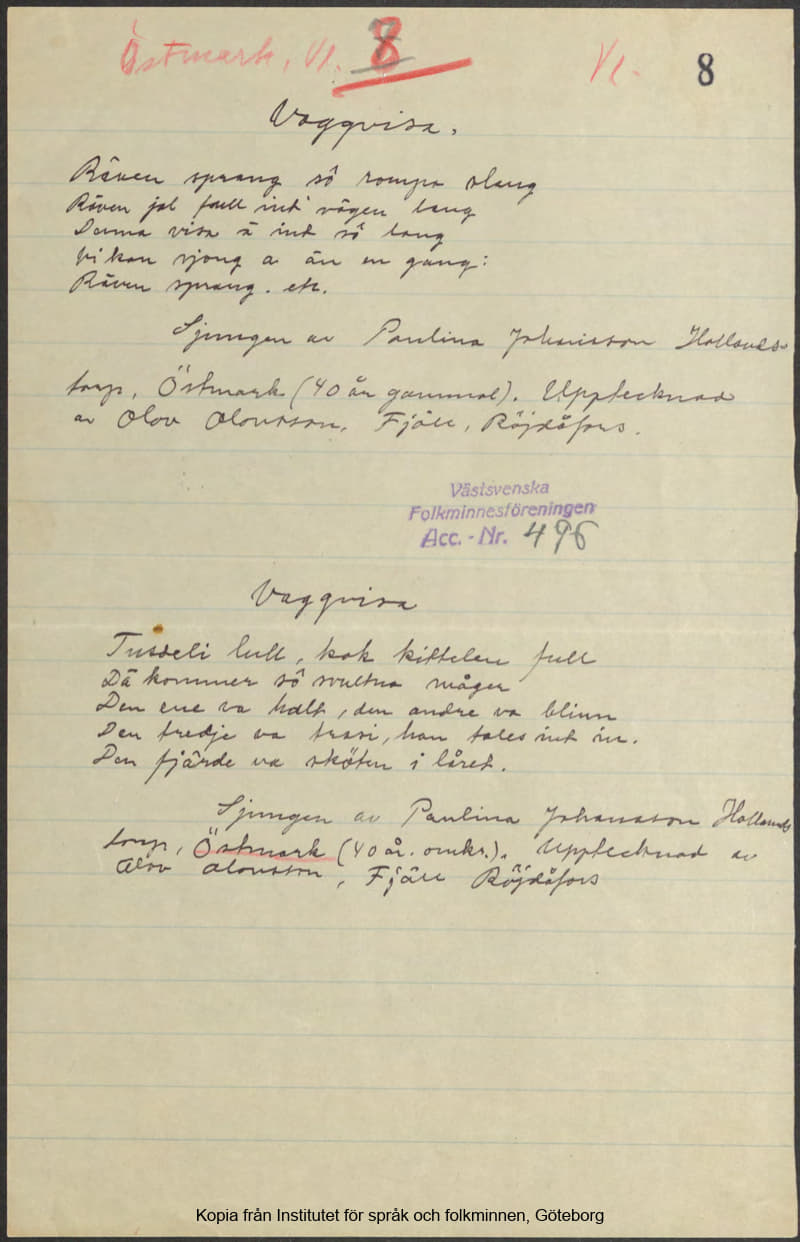 Östmark, Vl. 8
Vl. 8
Vaggvisa.
Räven sprang så rompa slang
Räven jol fall int vägen lang
Denna visa ä int så lang
Vi kan sjong a än en gang:
Räven sprang. etc.
Sjungen av Paulina Johansson Hollands-
torp, Östmark (40 år gammal). Upptecknad
av Olov Olovsson, Fjäll, Röjdåfors.
Västsvenska
Folkminnesföreningen
Acc. - Nr. 496
Vaggvisa
lull, kok kittelen full
Dä kommer så svultna måger
Den ene va halt, den andre va blinn
Den tredje va trasi, han tales int in.
Den fjärde va sköten i låret.
Sjungen av Paulina Johansson Hollands
torp, Östmark (40 år. omkr.). Upptecknad av
Olov Olovsson, Fjäll Röjdåfors
Kopia från Institutet för språk och folkminnen, Göteborg